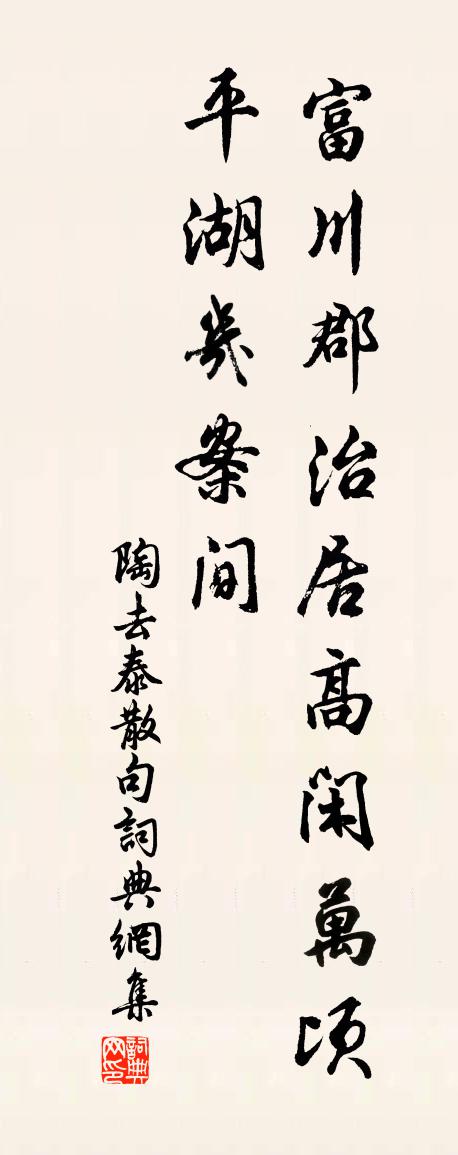 富川郡治居高閑萬頃
平湖几案間
陶去泰散句詞典網集
詞典网印